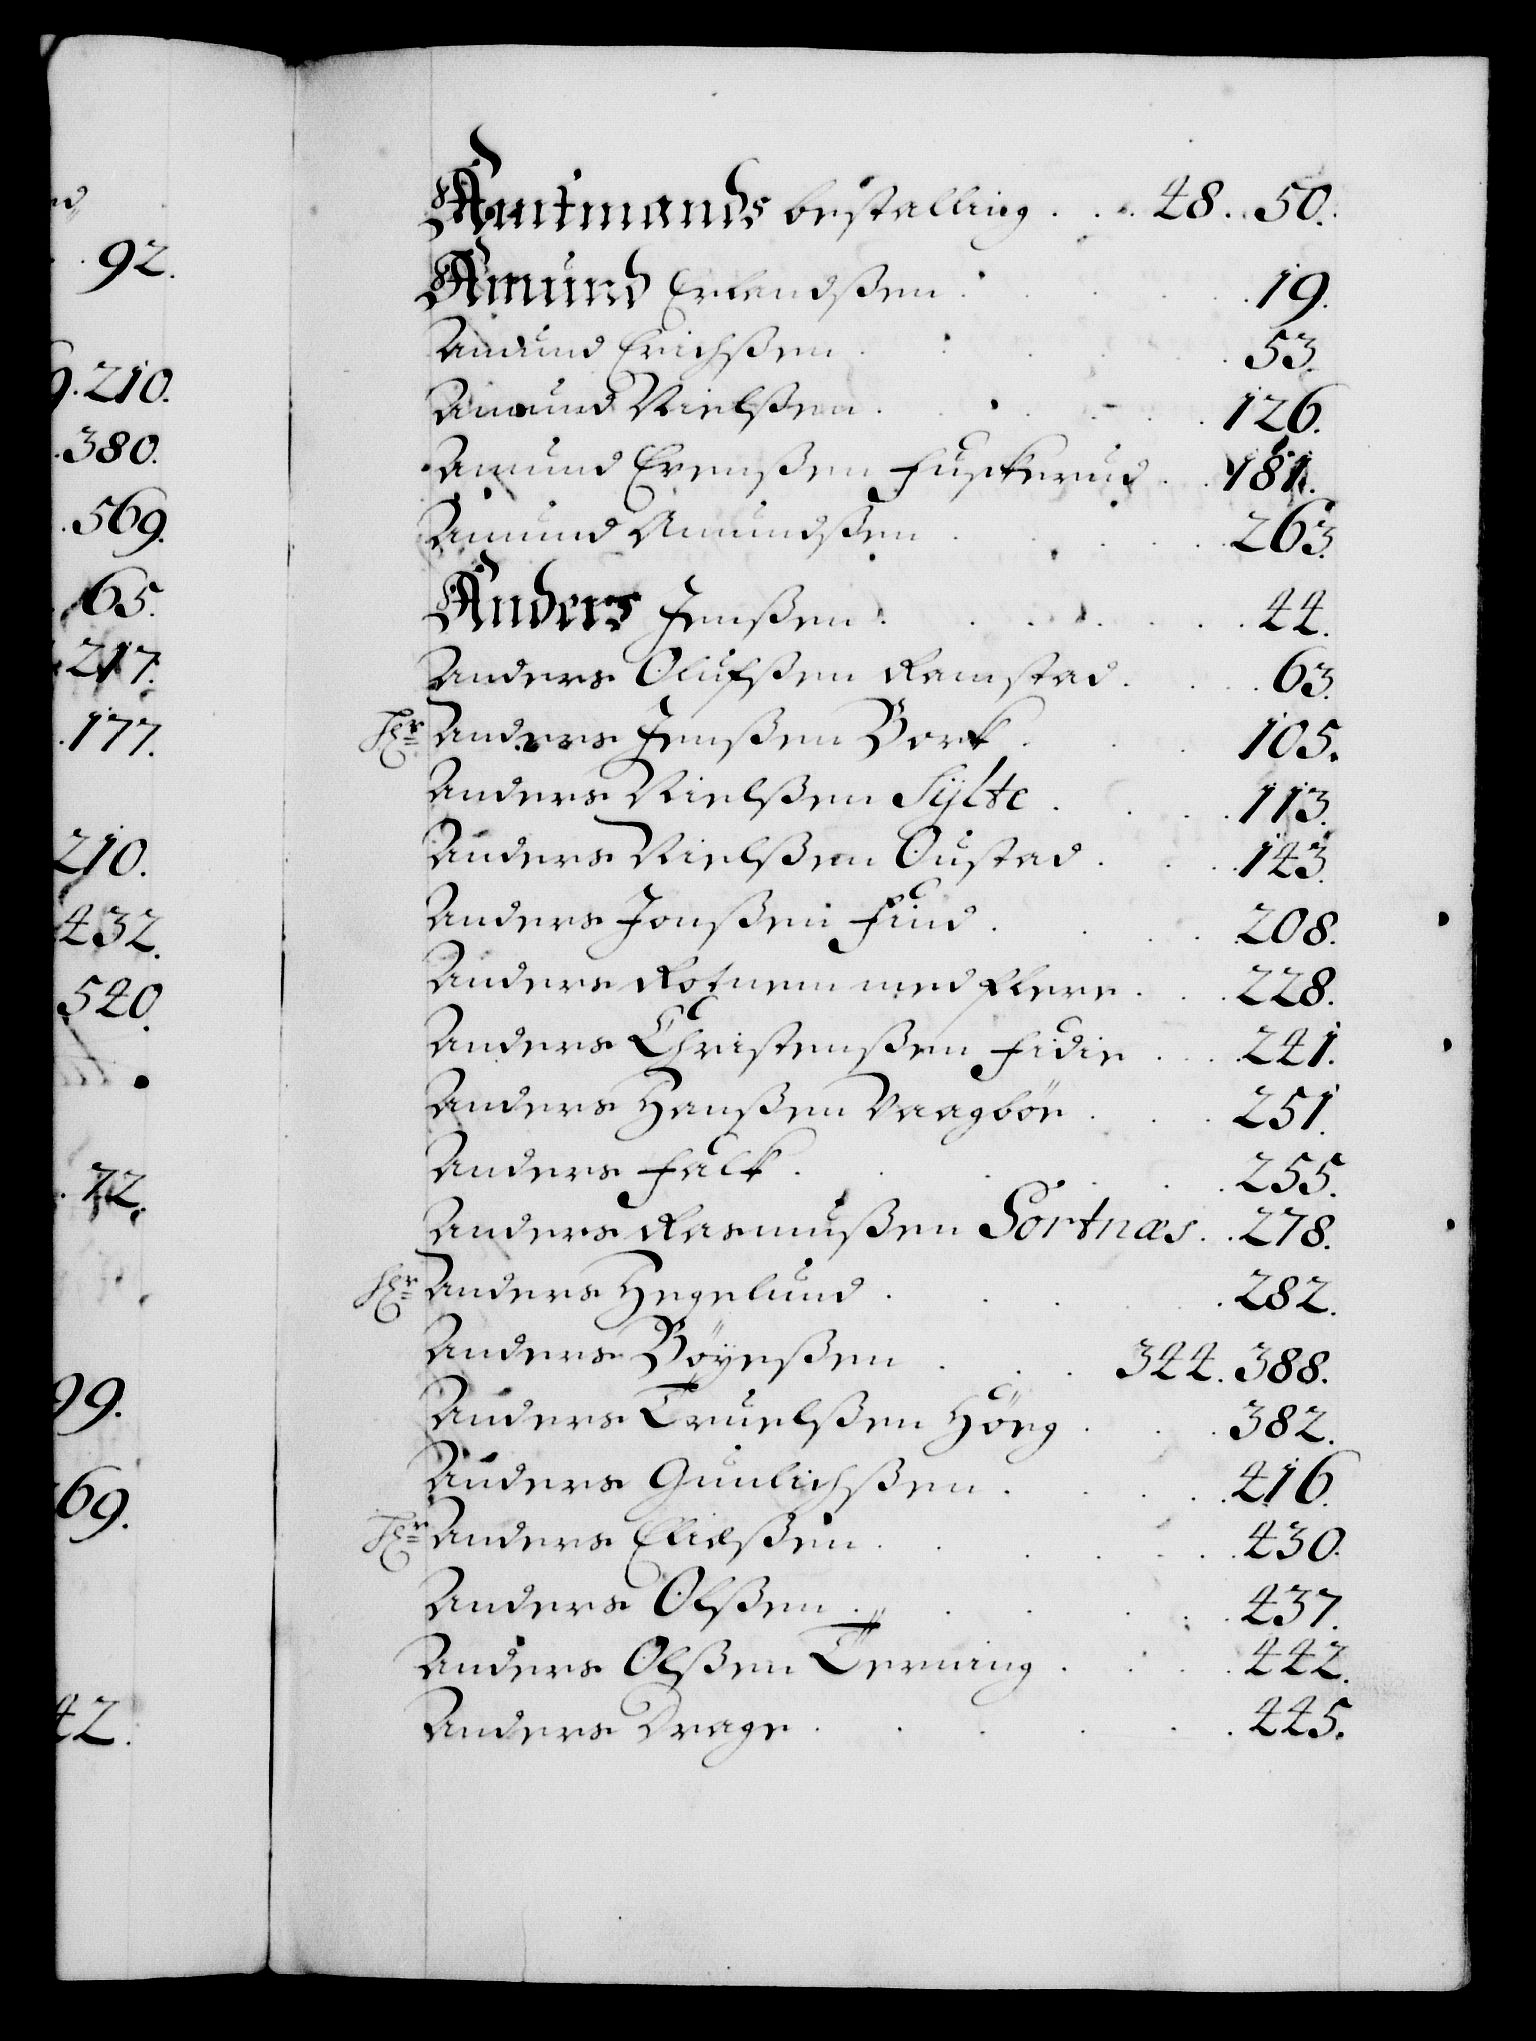 nd
92.
9. 210.
380.
569.
65.
217.
177.
210.
432.
540.
72.
99.
69.
42.
Amtmands bestalling . . . 48. 50.
Amund Erlandßen . . . 19.
Amund Erichßen . . . 53.
Amund Nielßen . . . 126.
Amund Evenßen Fuskerud . . 181.
Amund Amundßen . . . 263.
Anders Jenßen . . . 44.
Anders Olufßen Ramstad . . . 63.
Hr Anders Jenßen Bork . . . 105.
Anders Nielßen Sÿlte . . . 113.
Anders Nielßen Oustad . . . 143.
Anders Jonßen Find . . . 208.
Anders Rotnem med flere . . . 228.
Anders Christenßen Fidie . . . 241.
Anders Hanßen Vaagböe . . . 251.
Anders Falk . . . 255.
Anders Rasmußen Sortnæs . . 278.
Hr Anders Hegelund . . . 282.
Anders Böyeßen . . . 344. 388.
Anders Truelßen Höeg . . . 382.
Anders Gunlichßen . . . 416.
Hr Anders Eliæßen . . . 430.
Anders Olßen . . . 437.
Anders Olßen Terning . . . 442.
Anders Drage . . . 445.